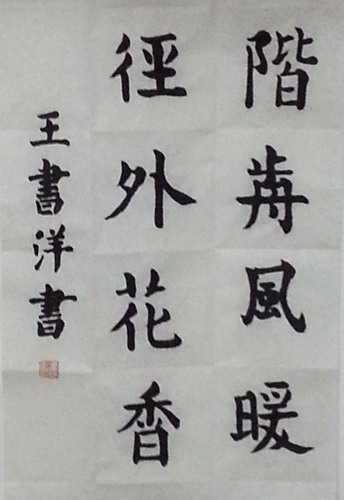 階歬風暖
徑外花香
王書洋書